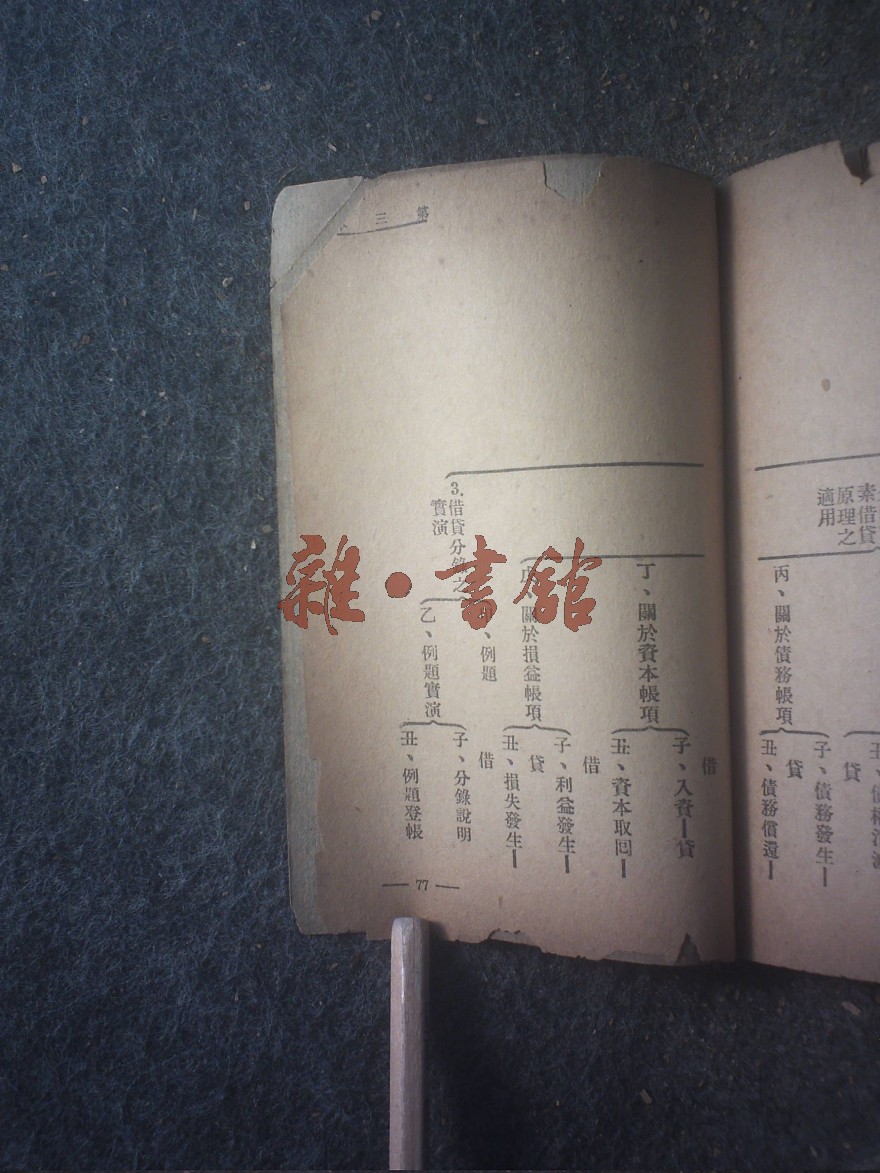 貸
素借貸
原理之
適用
丙、關於債務帳項
子、債務發生—
貸
丑、債務償還—
借
丁、關於資本帳項
子、入資—貸
丑、資本取囘—
借
關於損益帳項
子、利益發生—
貸
丑、損失發生—
借
3.借貸分錄之
實演
、例題
乙、例題實演
子、分錄說明
丑、例題登帳
第三
— 77 —
雜·書館